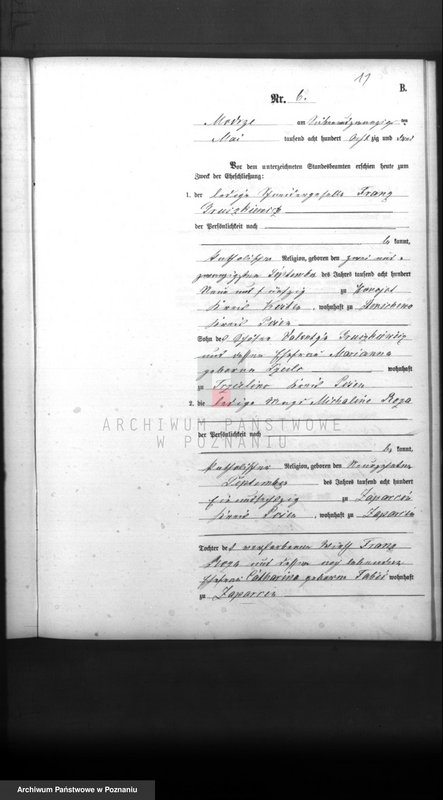 19
B.
Nr. 6.
Modrze am Siebenundzwanzigsten
Mai tausend acht hundert achtzig und drei
Vor dem unterzeichneten Standesbeamten erschien heute zum
Zweck der Eheschließung:
1. der ledige Franz
der Persönlichkeit nach
be kannt,
katholischer Religion, geboren den zwei und
zwanzigsten September des Jahres tausend acht hundert
Neun und fünfzig zu
Kreis Posen
Sohn des
und dessen Ehefrau Marianna
geborene wohnhaft
zu Kreis Posen
2. die ledige Magd Michalina Roza
ARCHIWUM PAŃSTWOWE
W POZNANIU
der Persönlichkeit nach
be kannt,
katholischer Religion, geboren den Neunzehnten
September des Jahres tausend acht hundert
zu Zaparcin
Kreis Posen, wohnhaft zu Zaparcin
Tochter des verstorbenen Wirth Franz
Roza und dessen noch lebenden
Ehefrau Catharina geborene wohnhaft
zu Zaparcin
Archiwum Państwowe w Poznaniu